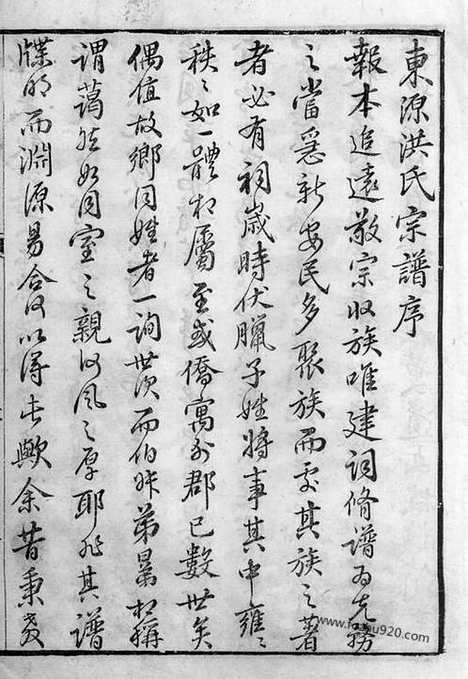 東源洪氏宗譜序
報本追遠敬宗收族唯建祠脩譜為先務
之當急新安民多聚族而處其族之著
者必有祠歲時伏臘子姓將事其中雍〻
秩〻如一體相屬至或僑寓外郡已數世矣
偶值故鄉同姓者一詢世次而伯叔弟晜相稱
謂藹然如同室之親何風之厚耶非其譜
牒明而淵源易合何以得此歟余昔秉
www.foshu920.com